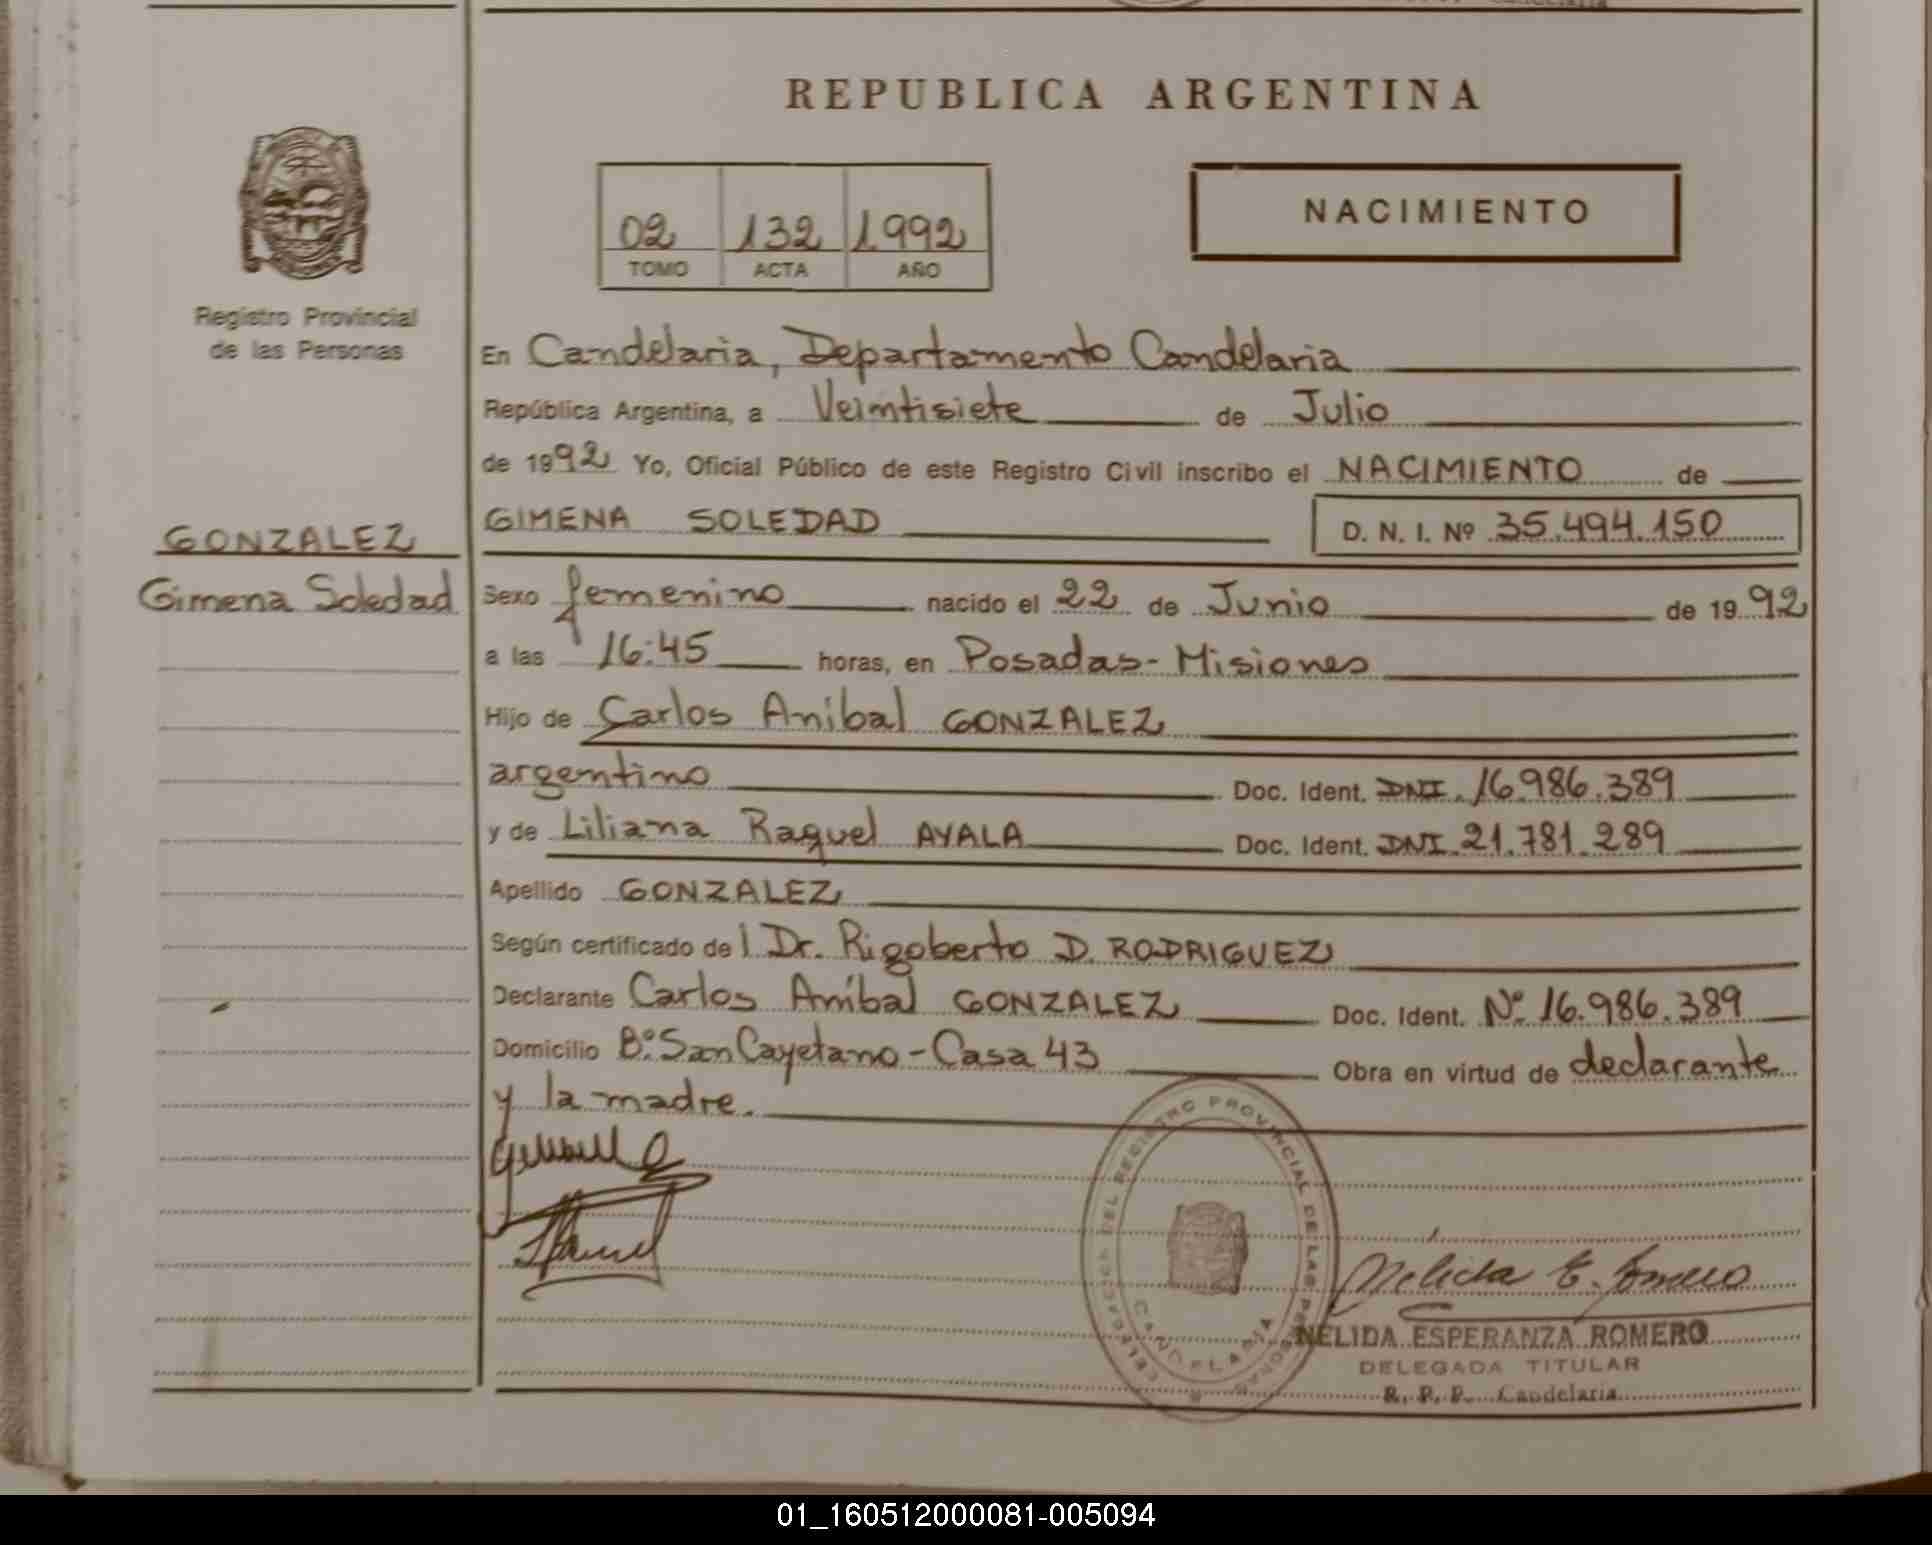 REPUBLICA ARGENTINA
02 132 1992
TOMO ACTA AÑO
NACIMIENTO
Registro Provincial
de las Personas
GONZALEZ
Gimena Soledad
En Candelaria, Departamento Candelaria
República Argentina, a Veintisiete de Julio
de 1992 Yo, Oficial Público de este Registro Civil inscribo el NACIMIENTO de
GIMENA SOLEDAD D. N. I. Nº 35.494.150
Sexo femenino nacido el 22 de Junio de 1992
a las 16:45 horas, en Posadas-Misiones
Hijo de Carlos Anibal GONZALEZ
argentino Doc. Ident. DNI. 16.986.389
y de Liliana Raquel AYALA Doc. Ident. DNI. 21.781.289
Apellido GONZALEZ
Según certificado de l Dr. Rigoberto D. RODRIGUEZ
Declarante Carlos Aníbal GONZALEZ Doc. Ident. Nº 16.986.389
Domicilio Bº San Cayetano - Casa 43 Obra en virtud de declarante
y la madre.
DELEGACION DEL REGISTRO PROVINCIAL DE LAS PERSONAS
CANDELARIA
Nelida E. Romero
NELIDA ESPERANZA ROMERO
DELEGADA TITULAR
R. P. P. Candelaria
01_160512000081-005094